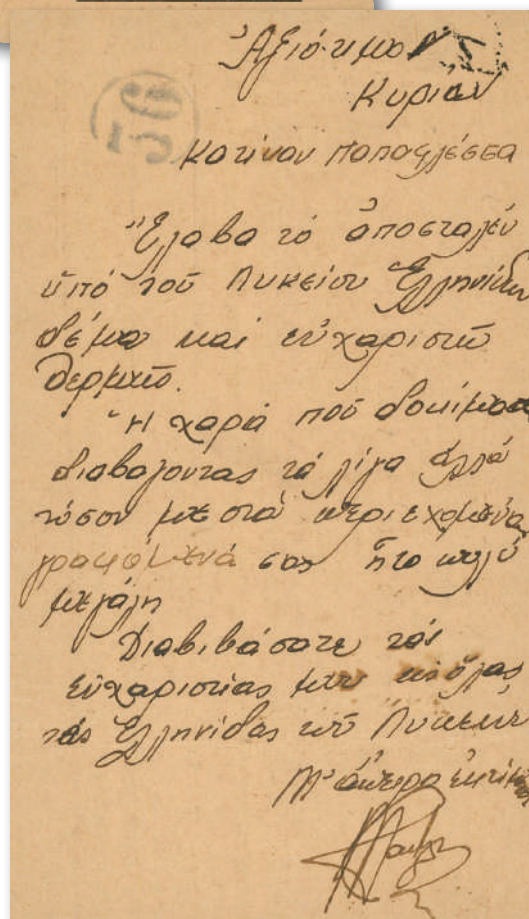 Ἀξιότιμο
Κυρίαν
56
Κατίναν Παπαφλέσσα
Ἔλαβα τό ἀποσταλέν
ὑπό τοῦ Λυκείου Ἑλληνίδων
δέμα καί εὐχαριστῶ
θερμῶς.
Ἡ χαρά πού δοκίμασα
διαβάζοντας τά λίγα ἀλλά
τόσον μεστά περιεχομένου
γραφόμενά σας ἦτο πολύ
μεγάλη
Διαβιβάσατε τάς
εὐχαριστίας μου εἰς ὅλας
τάς Ἑλληνίδας τοῦ Λυκείου
Μ' ἄπειρο ἐκτίμηση